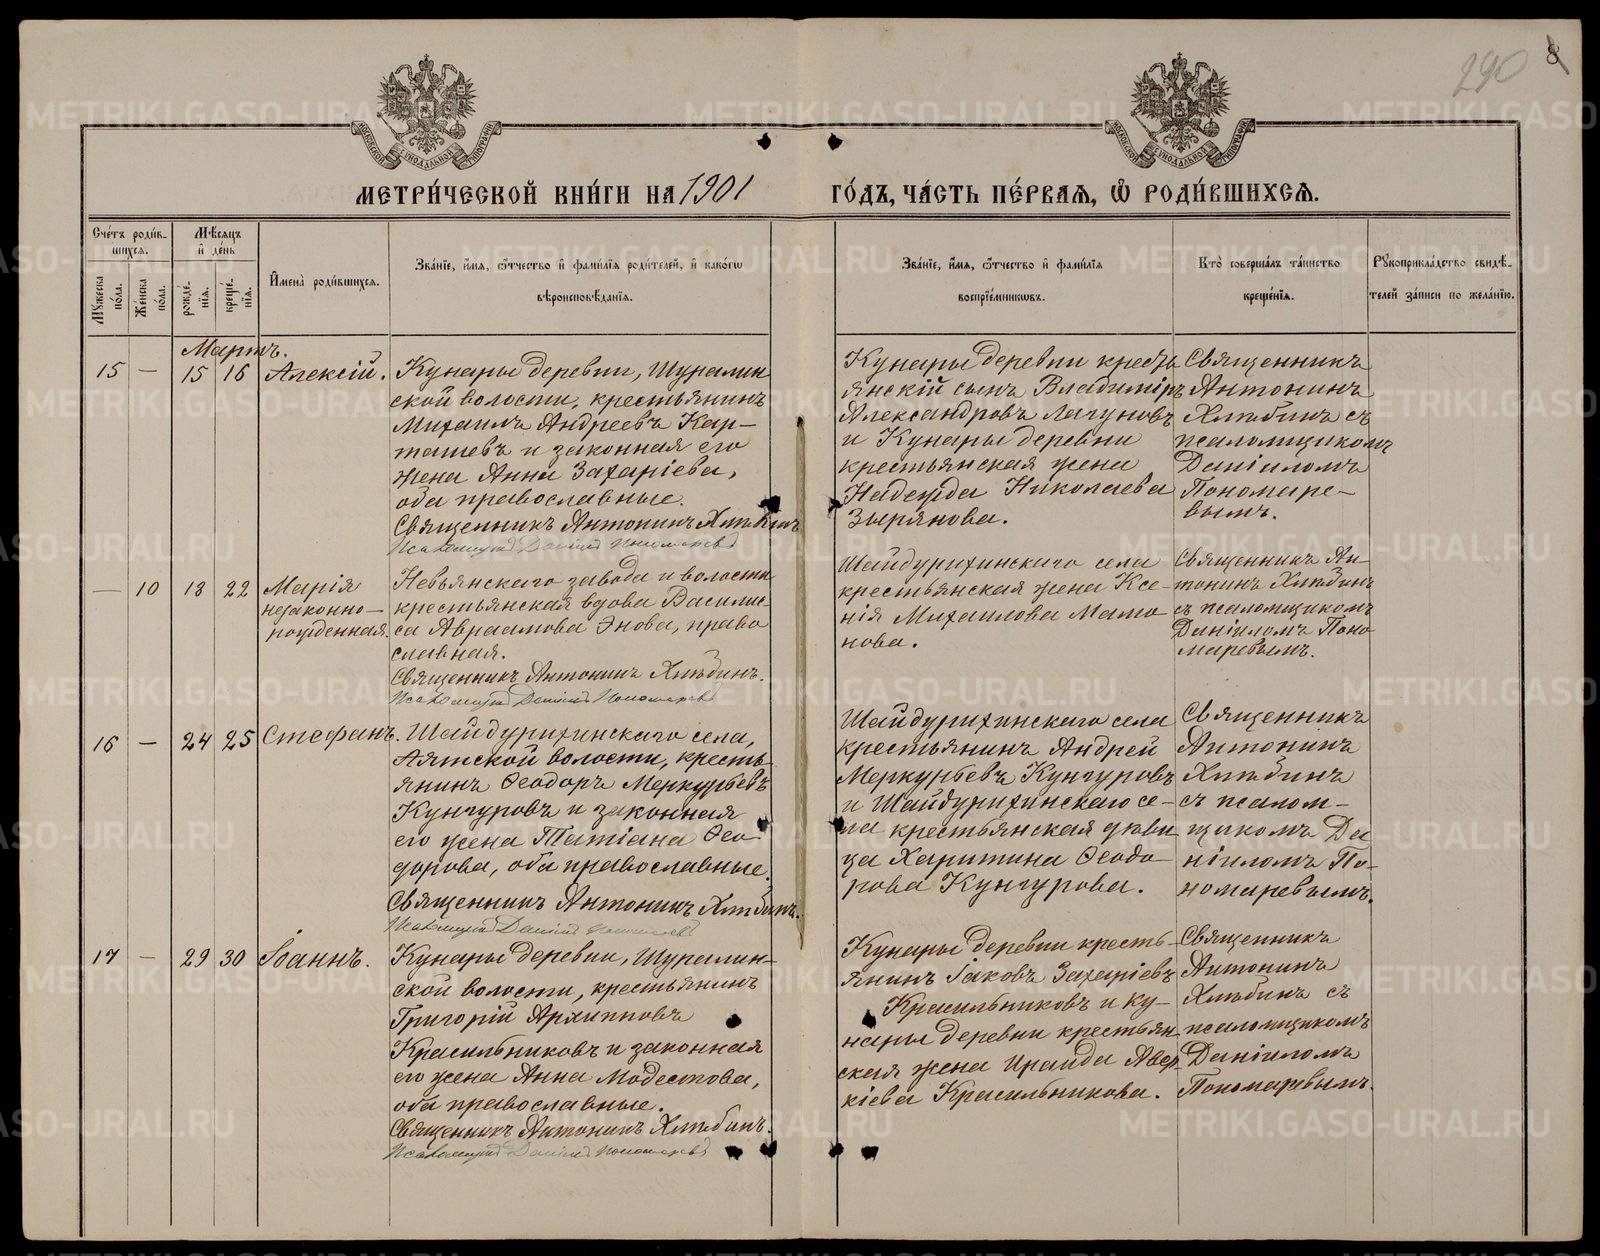 290 8
МОСКОВСКОЙ СУНОДАЛЬНОЙ ТИПОГРАФІИ
МОСКОВСКОЙ СУНОДАЛЬНОЙ ТИПОГРАФІИ
МЕТРИ́ЧЕСКОЙ КНИ́ГИ НА 1901 ГО́ДЪ, ЧА́СТЬ ПЕ́РВАѦ, Ѽ РОДИ́ВШИХСѦ.
Сче́тъ роди́в-
шихся.
Мѣ́сяцъ
и҆ де́нь
Мꙋ́жеска по́ла.
Же́нска по́ла.
рожде́-нїя.
креще́-нїя.
И҆мена̀ роди́вшихся.
Зва́нїе, и҆́мя, ѻ҆́тчество и҆ фами́лїя роди́телей, и҆ како́гѡ
вѣроисповѣ́данїя.
Зва́нїе, и҆́мя, ѻ҆́тчество и҆ фами́лїя
воспрїе́мникѡвъ.
Кто̀ соверша́лъ та́инство
креще́нїя.
Рꙋкоприкла́дство свидѣ́-
телей за́писи по жела́нїю.
Мартъ.
15 — 15 16 Алексій.
Кунары деревни, Шуралин
ской волости, крестьянинъ
Михаилъ Андреевъ Кар-
ташевъ и законная его
жена Анна Захаріева,
оба православные.
Священникъ Антонинъ Хлѣбинъ
Псаломщикъ Даніилъ Пономаревъ
Кунары деревни кресть
янскій сынъ Владиміръ
Александровъ Лагуновъ
и Кунары деревни
крестьянская жена
Надежда Николаева
Зырянова.
Священникъ
Антонинъ
Хлѣбинъ съ
псаломщикомъ
Даніиломъ
Пономаре-
вымъ.
— 10 18 22 Марія
незаконно-
рожденная.
Невьянскаго завода и волости
крестьянская вдова Василис-
са Авраамова Энова, право
славная.
Священникъ Антонинъ Хлѣбинъ.
Псаломщикъ Даніилъ Пономаревъ
Шайдурихинскаго села
крестьянская жена Ксе-
нія Михаилова Мамо
нова.
Священникъ Ан-
тонинъ Хлѣбинъ
съ псаломщикомъ
Даніиломъ Поно
маревымъ.
16 — 24 25 Стефанъ.
Шайдурихинскаго села,
Аятской волости, кресть-
янинъ Ѳеодоръ Меркурьевъ
Кунгуровъ и законная
его жена Татіана Ѳео-
дорова, оба православные.
Священникъ Антонинъ Хлѣбинъ.
Псаломщикъ Даніилъ Пономаревъ
Шайдурихинскаго села
крестьянинъ Андрей
Меркурьевъ Кунгуровъ
и Шайдурихинскаго се-
ла крестьянская дѣви
ца Харитина Ѳеодо-
рова Кунгурова.
Священникъ
Антонинъ
Хлѣбинъ
съ псалом-
щикомъ Да
ніиломъ По-
номаревымъ.
17 — 29 30 Іоаннъ.
Кунары деревни, Шуралин-
ской волости, крестьянинъ
Григорій Архипповъ
Красильниковъ и законная
его жена Анна Модестова,
оба православные.
Священникъ Антонинъ Хлѣбинъ.
Псаломщикъ Даніилъ Пономаревъ
Кунары деревни кресть-
янинъ Іаковъ Захаріевъ
Красильниковъ и Ку-
нары деревни крестьян
ская жена Ираида Авер-
кіева Красильникова.
Священникъ
Антонинъ
Хлѣбинъ съ
псаломщикомъ
Даніиломъ
Пономаревымъ.
METRIKI.GASO-URAL.RU